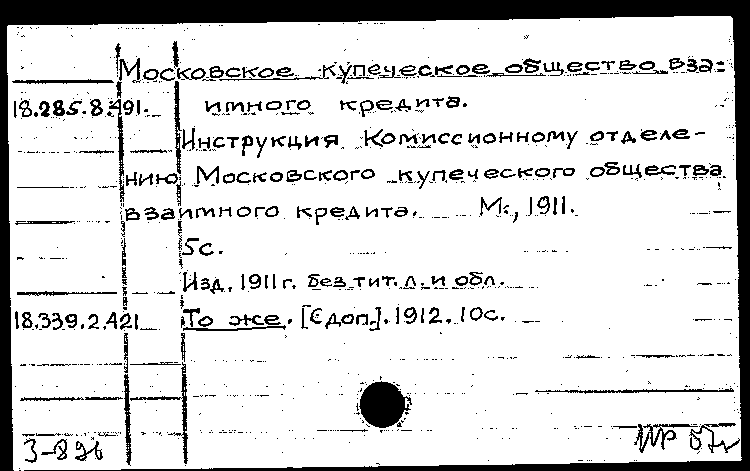 Московское купеческое общество вза-
18.285.8.491. имного кредита.
Инструкция Комиссионному отделе-
нию Московского купеческого общества
взаимного кредита. М., 1911.
5с.
Изд. 1911 г. без тит. л. и обл.
18.339.2.421 То же. [С доп.]. 1912. 10с.